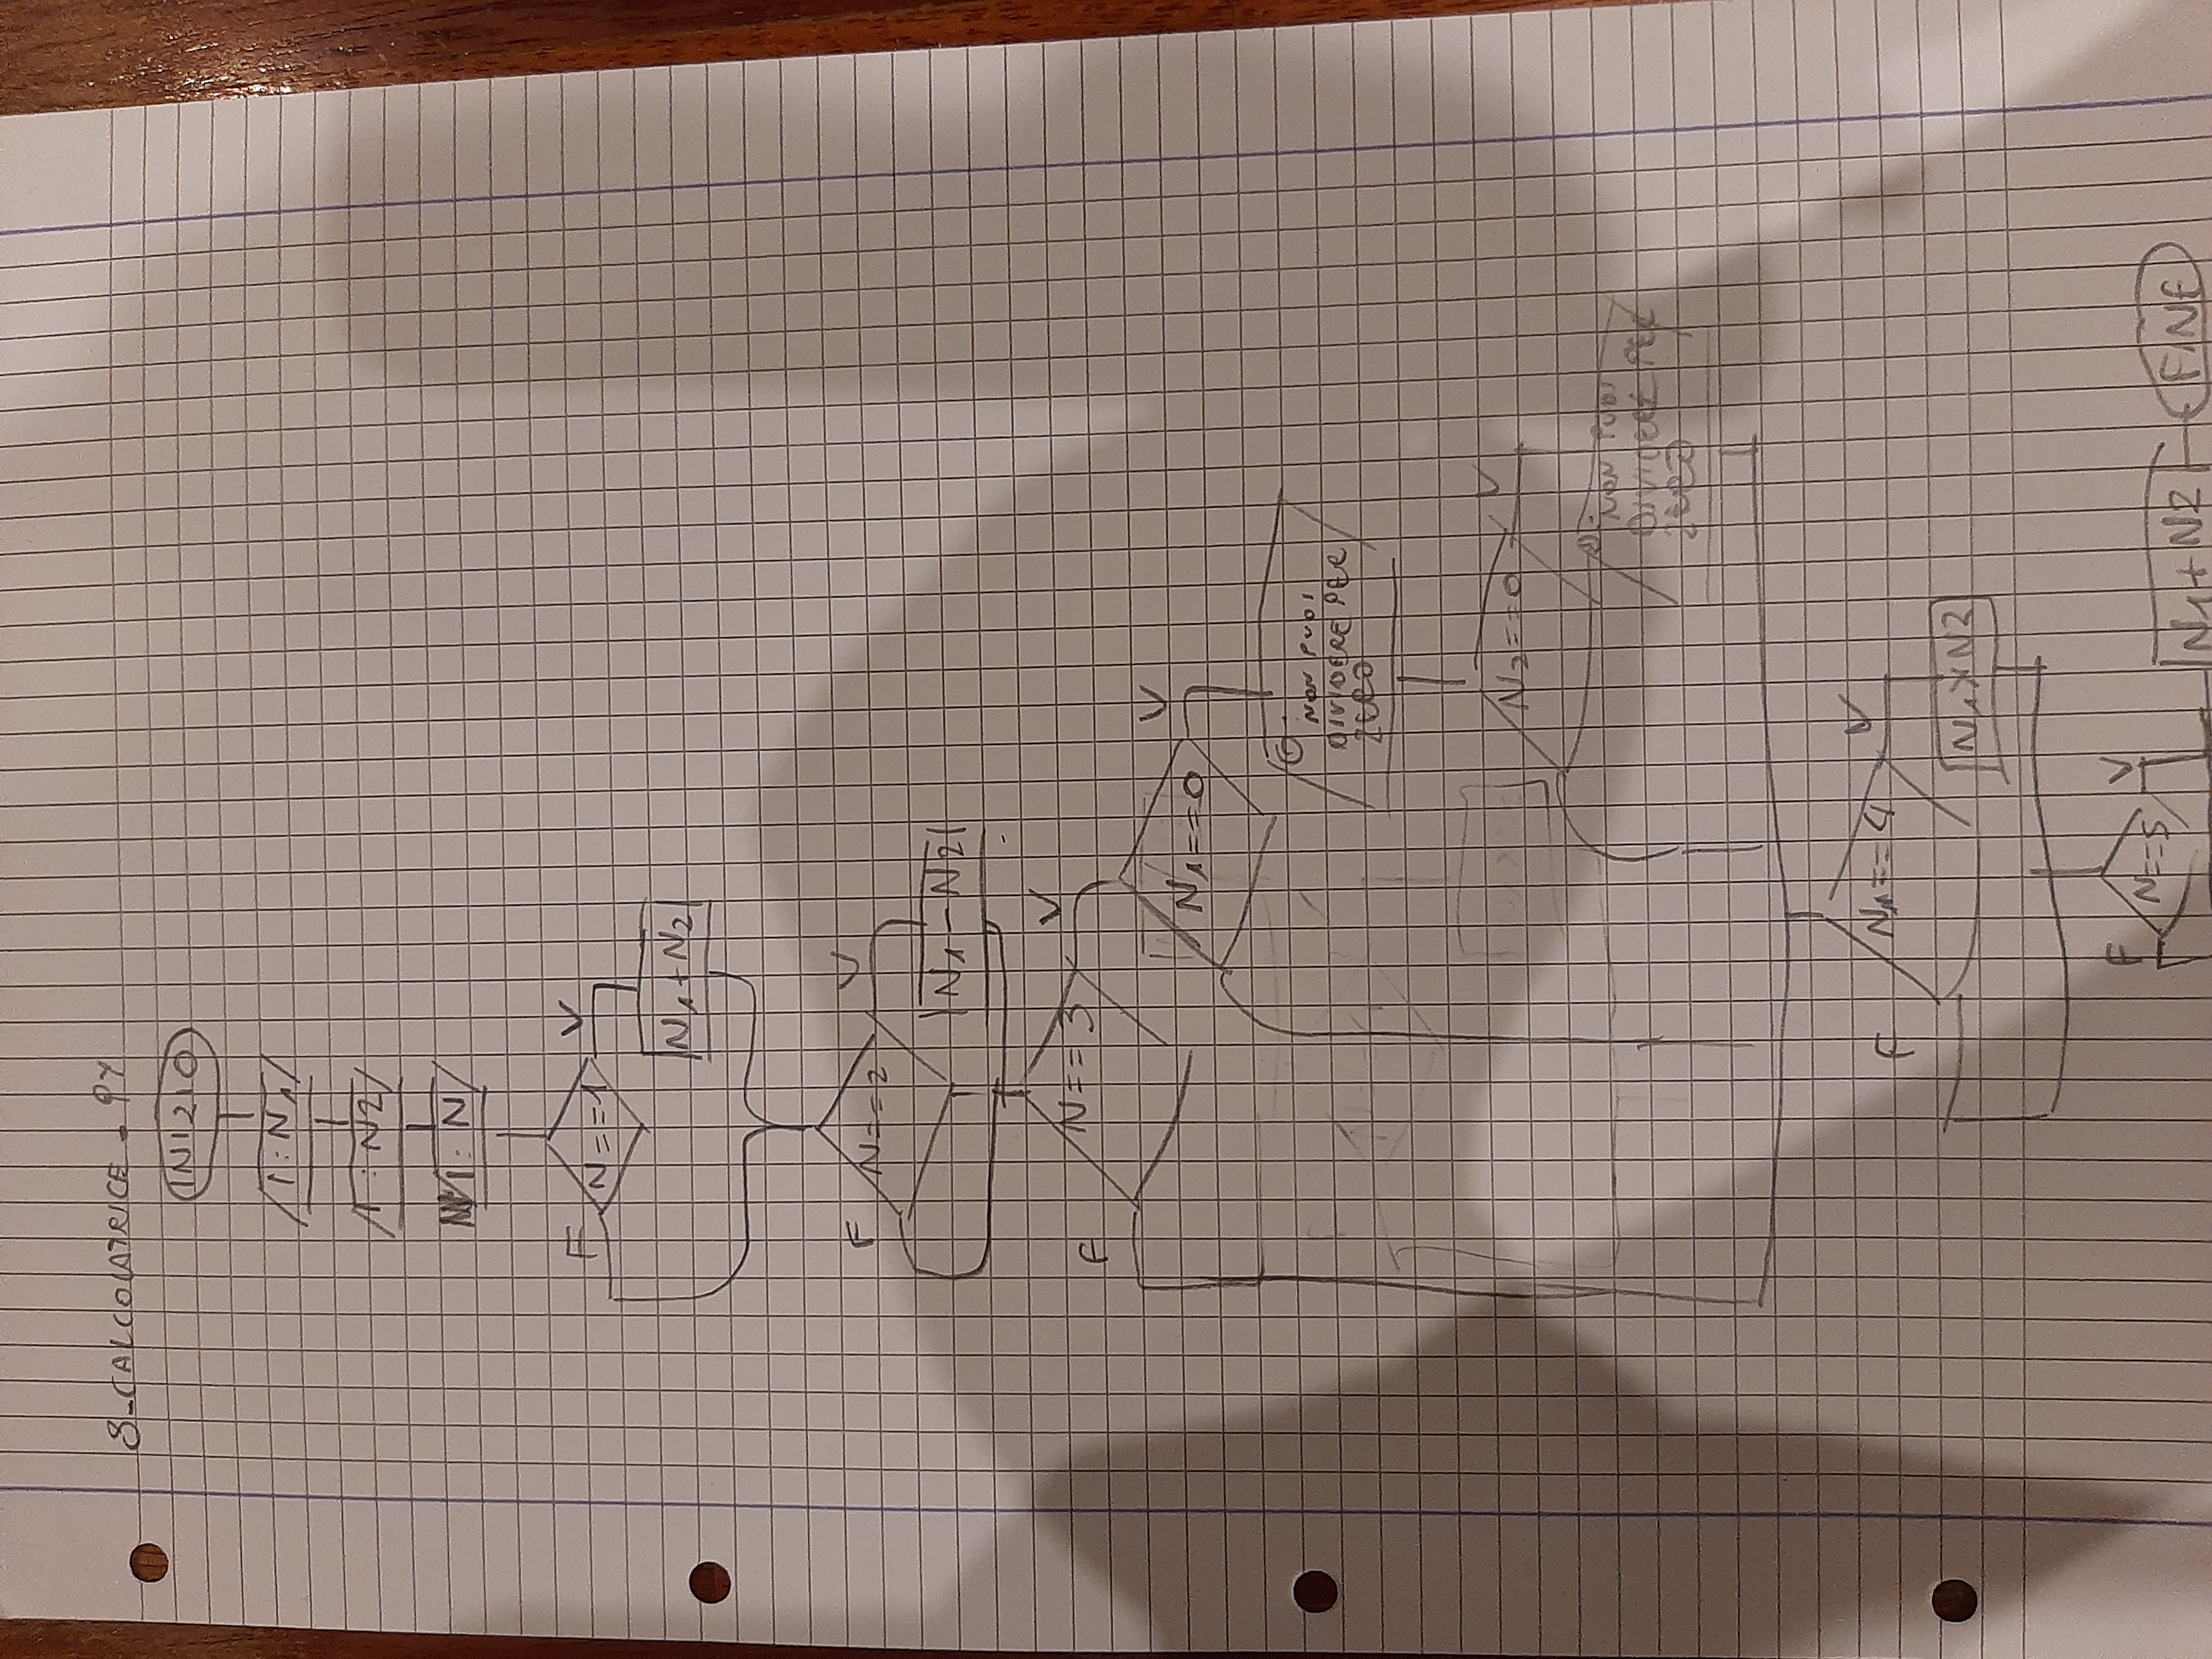 8-CALCOLATRICE-PY
INIZIO
I:N1
I:N2
I:N
N==1
V
F
N1+N2
N==2
V
F
N1-N2
N==3
V
F
N1==0
V
O:
NON PUOI
DIVIDERE PER
ZERO
N2==0
V
O:
NON PUOI
DIVIDERE PER
ZERO
N1==4
V
F
N1XN2
N==5
V
F
N1+N2
FINE